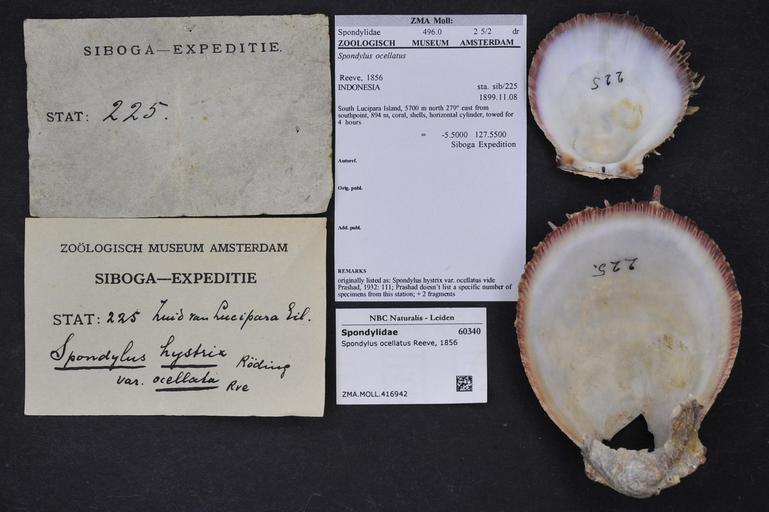 SIBOGA—EXPEDITIE.
STAT: 225.
ZOÖLOGISCH MUSEUM AMSTERDAM
SIBOGA—EXPEDITIE
STAT: 225 Zuid van Lucipara Eil.
Spondylus hystrix Röding
var. ocellata Rve
ZMA Moll:
Spondylidae 496.0 2 5/2 dr
ZOOLOGISCH MUSEUM AMSTERDAM
Spondylus ocellatus
Reeve, 1856
INDONESIA sta. sib/225
1899.11.08
South Lucipara Island, 5700 m north 279° east from
southpoint, 894 m, coral, shells, horizontal cylinder, towed for
4 hours
= -5.5000 127.5500
Siboga Expedition
Autoref.
Orig. publ.
Add. publ.
REMARKS
originally listed as: Spondylus hystrix var. ocellatus vide
Prashad, 1932: 111; Prashad doesn't list a specific number of
specimens from this station; + 2 fragments
NBC Naturalis - Leiden
Spondylidae 60340
Spondylus ocellatus Reeve, 1856
ZMA.MOLL.416942
225
225.